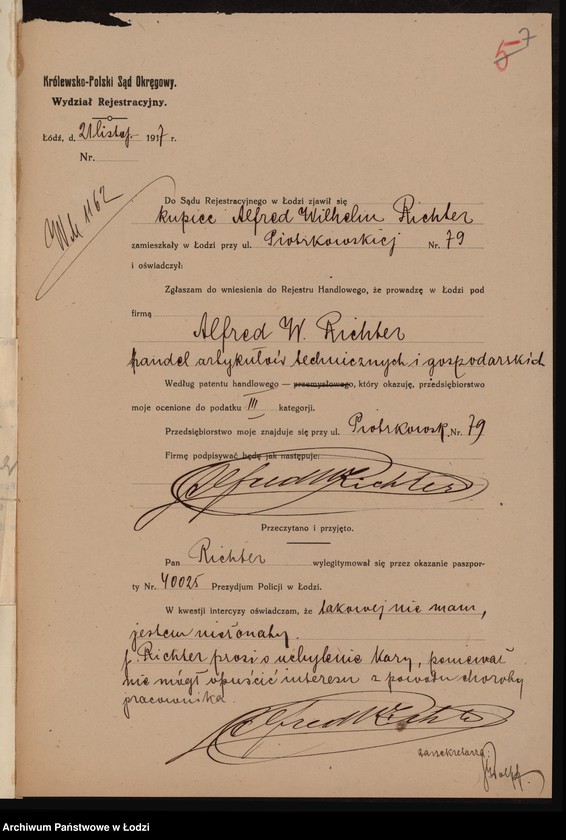 7
5
Królewsko-Polski Sąd Okręgowy.
Wydział Rejestracyjny.
Łódź, d. 21 listop. 1917 r.
Nr.
1162
Do Sądu Rejestracyjnego w Łodzi zjawił się
kupiec Alfred Wilhelm Richter
zamieszkały w Łodzi przy ul. Piotrkowskiej Nr. 79
i oświadczył:
Zgłaszam do wniesienia do Rejestru Handlowego, że prowadzę w Łodzi pod
firmą
Alfred W. Richter
handel artykułów technicznych i gospodarskich
Według patentu handlowego — przemysłowego, który okazuję, przedsiębiorstwo
moje ocenione do podatku III kategorji.
Przedsiębiorstwo moje znajduje się przy ul. Piotrkowsk. Nr. 79
Firmę podpisywać będę jak następuje:
Alfred W Richter
Przeczytano i przyjęto.
Pan Richter wylegitymował się przez okazanie paszpor-
ty Nr. 40025 Prezydjum Policji w Łodzi.
W kwestji intercyzy oświadczam, że takowej nie mam,
jestem nieżonaty.
p. Richter prosi o uchylenie kary, ponieważ
nie mógł opuścić interesu z powodu choroby
pracownika.
Alfred W Richter
za sekretarza:
Archiwum Państwowe w Łodzi